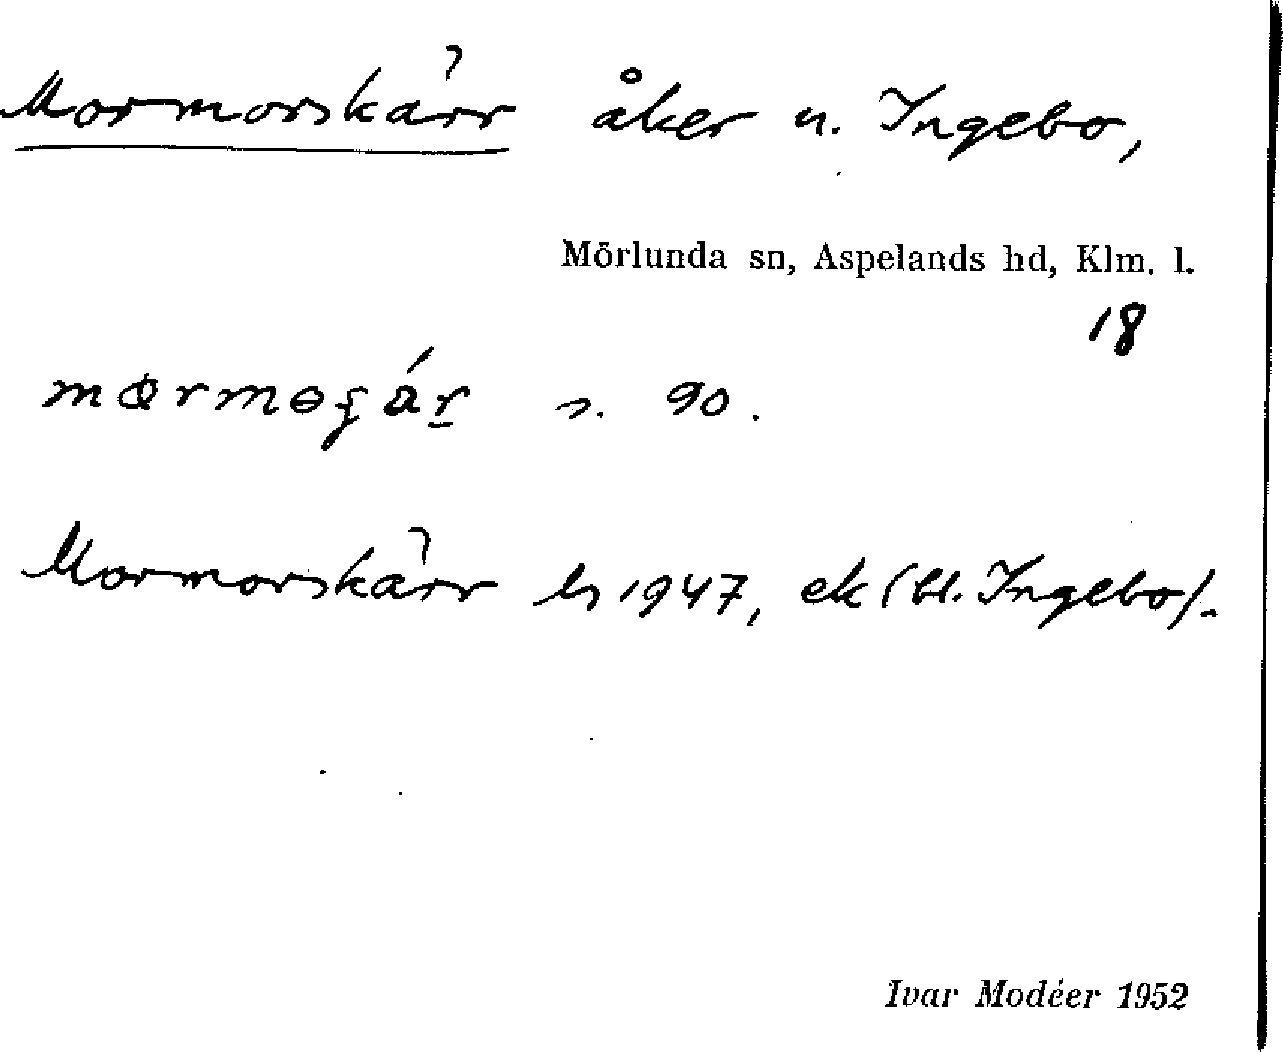 Mormorskärr åker n. Ingebo,
Mörlunda sn, Aspelands hd, Klm. l.
18
s. 90.
Mormorskärr by 1947, ek (bl. Ingebo).
Ivar Modéer 1952